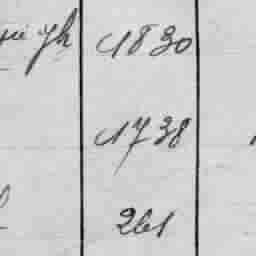 1830
1738
261